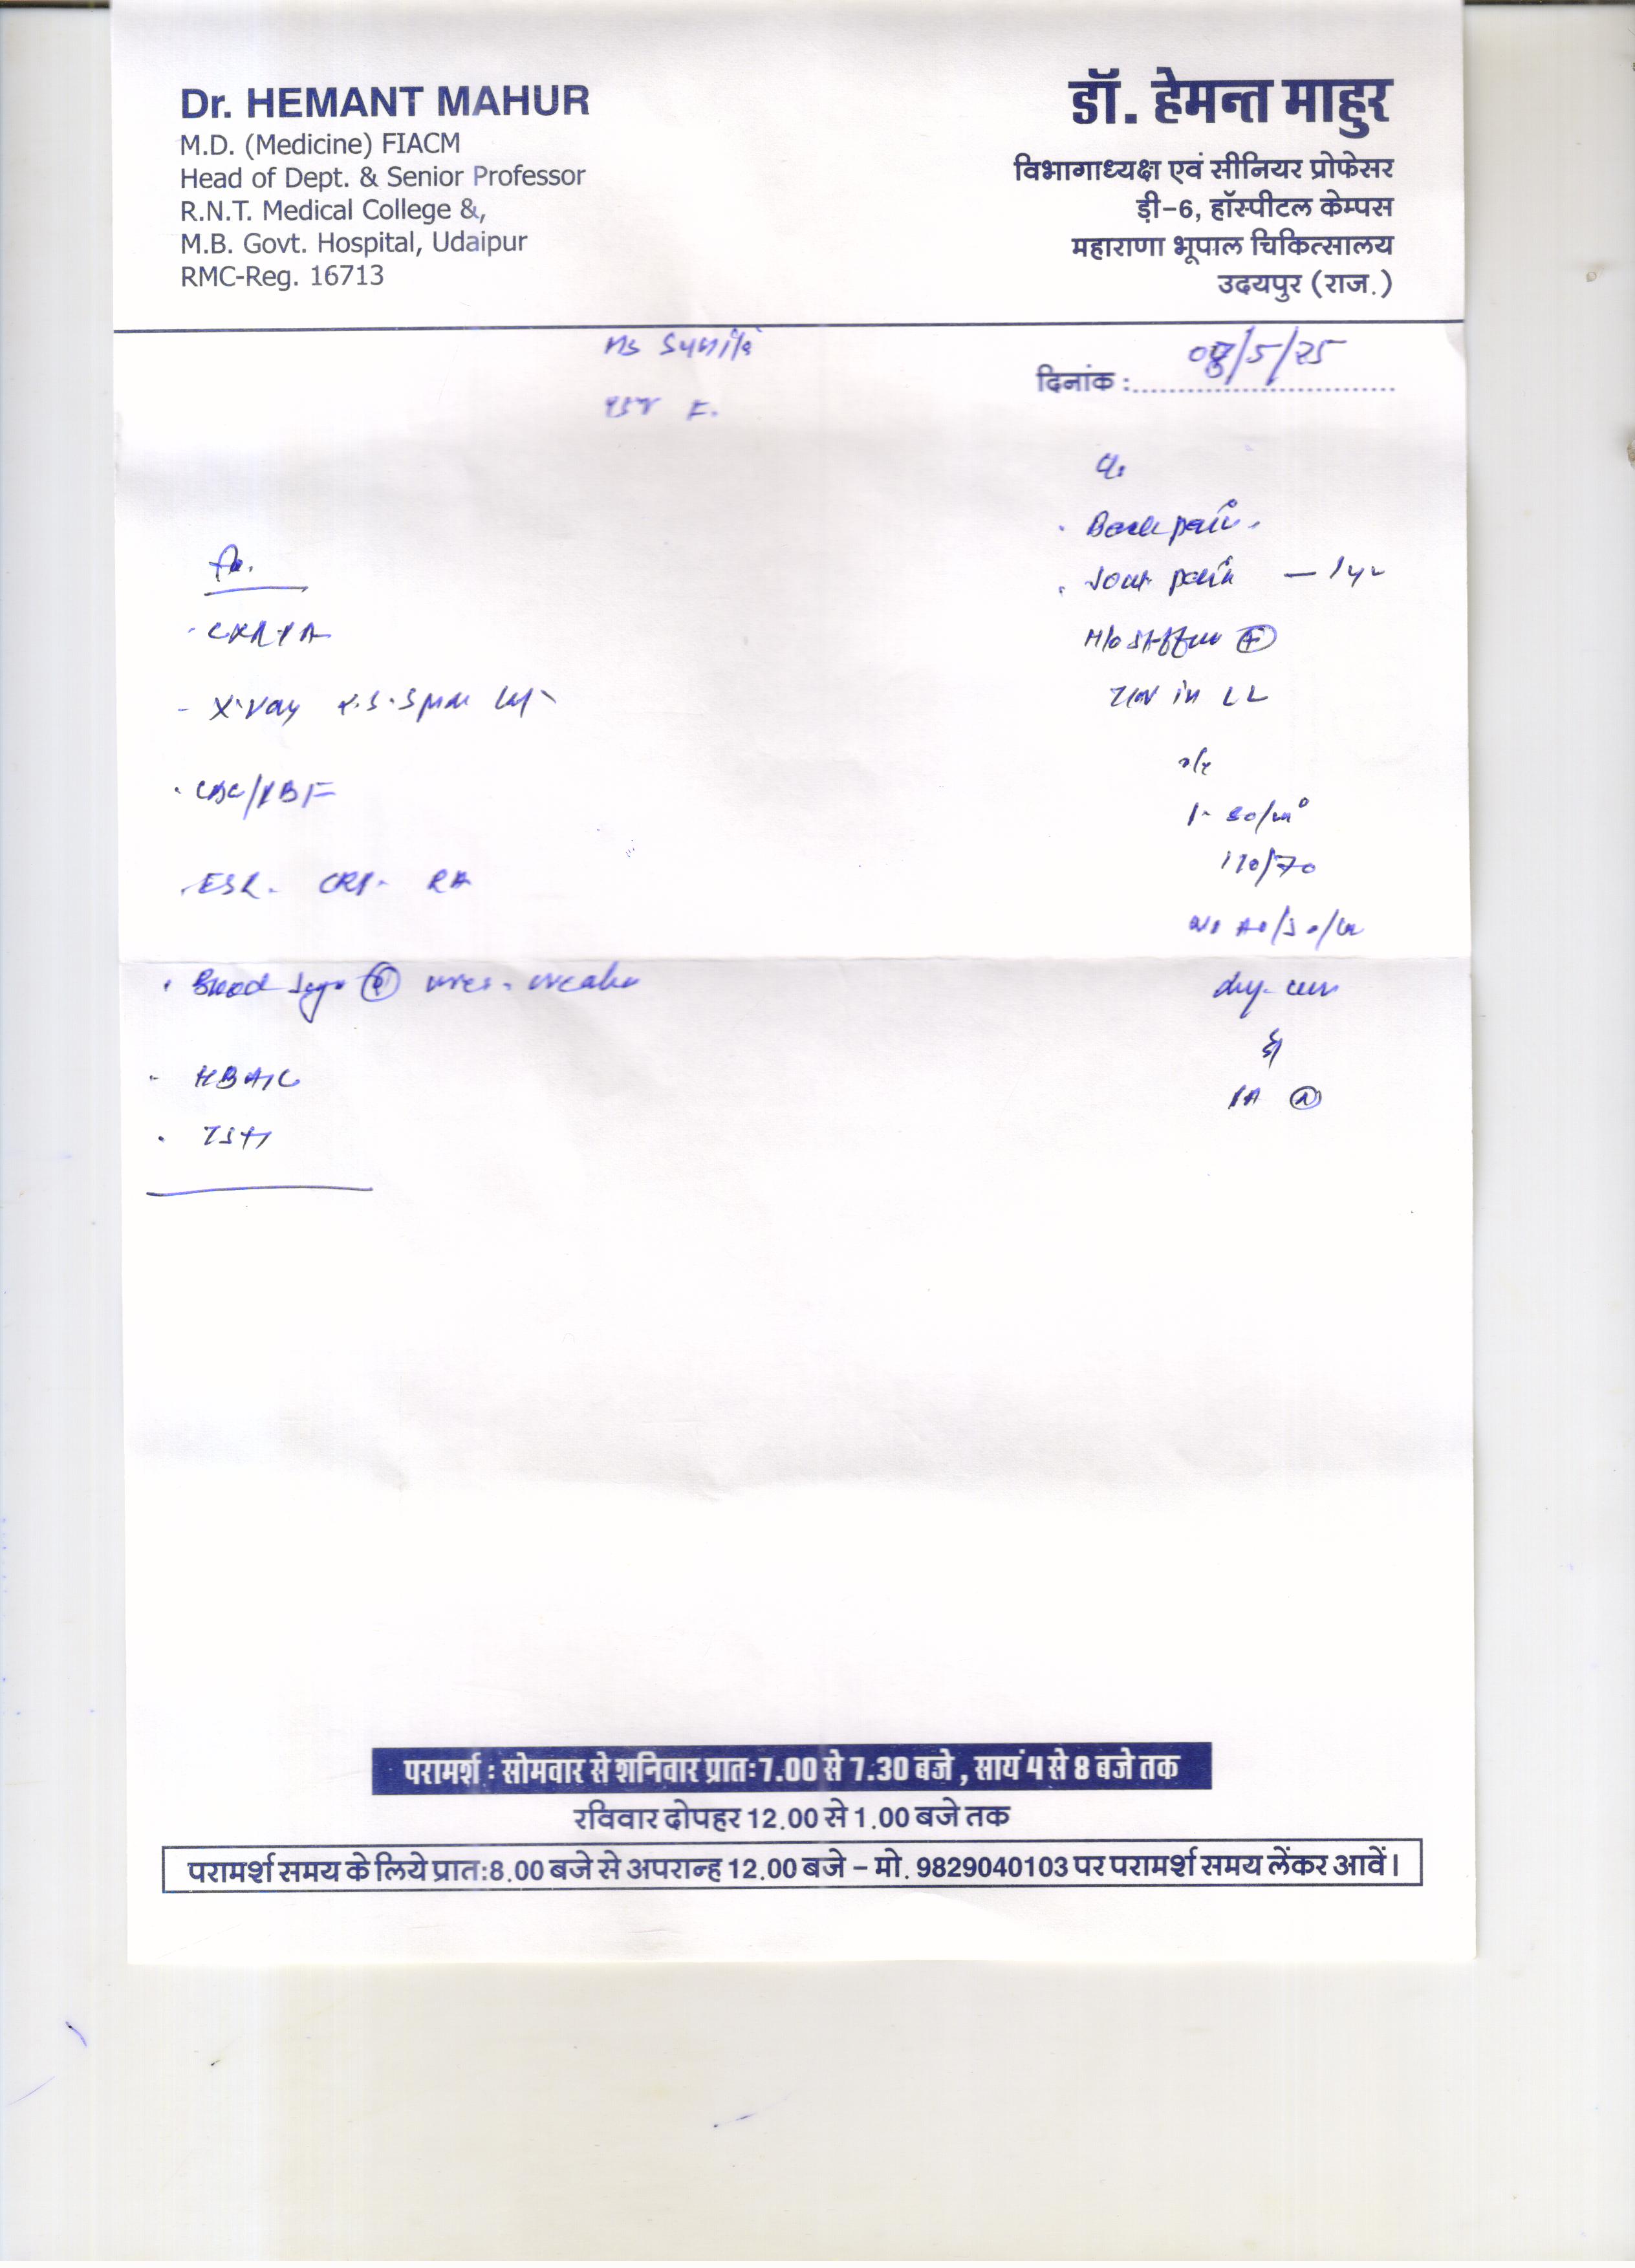 Dr. HEMANT MAHUR
M.D. (Medicine) FIACM
Head of Dept. & Senior Professor
R.N.T. Medical College &,
M.B. Govt. Hospital, Udaipur
RMC-Reg. 16713
डॉ. हेमन्त माहुर
विभागाध्यक्ष एवं सीनियर प्रोफेसर
ड़ी-6, हॉस्पीटल केम्पस
महाराणा भूपाल चिकित्सालय
उदयपुर (राज.)
Ms Sunita
F.
दिनांक : 08/5/25
Back pain.
Joint pain — 1 yr
H/o stiffness +
in LL
o/e
P- 80/m
110/70
PA N
- CXR PA
- X-ray L.S. Spine
CBC/PBF
ESR. CRP. RA
Blood Sugar urea. creatin
- HBA1C
TSH
परामर्श : सोमवार से शनिवार प्रातः7.00 से 7.30 बजे , सायं 4 से 8 बजे तक
रविवार दोपहर 12.00 से 1.00 बजे तक
परामर्श समय के लिये प्रातः8.00 बजे से अपरान्ह 12.00 बजे – मो. 9829040103 पर परामर्श समय लेंकर आवें।